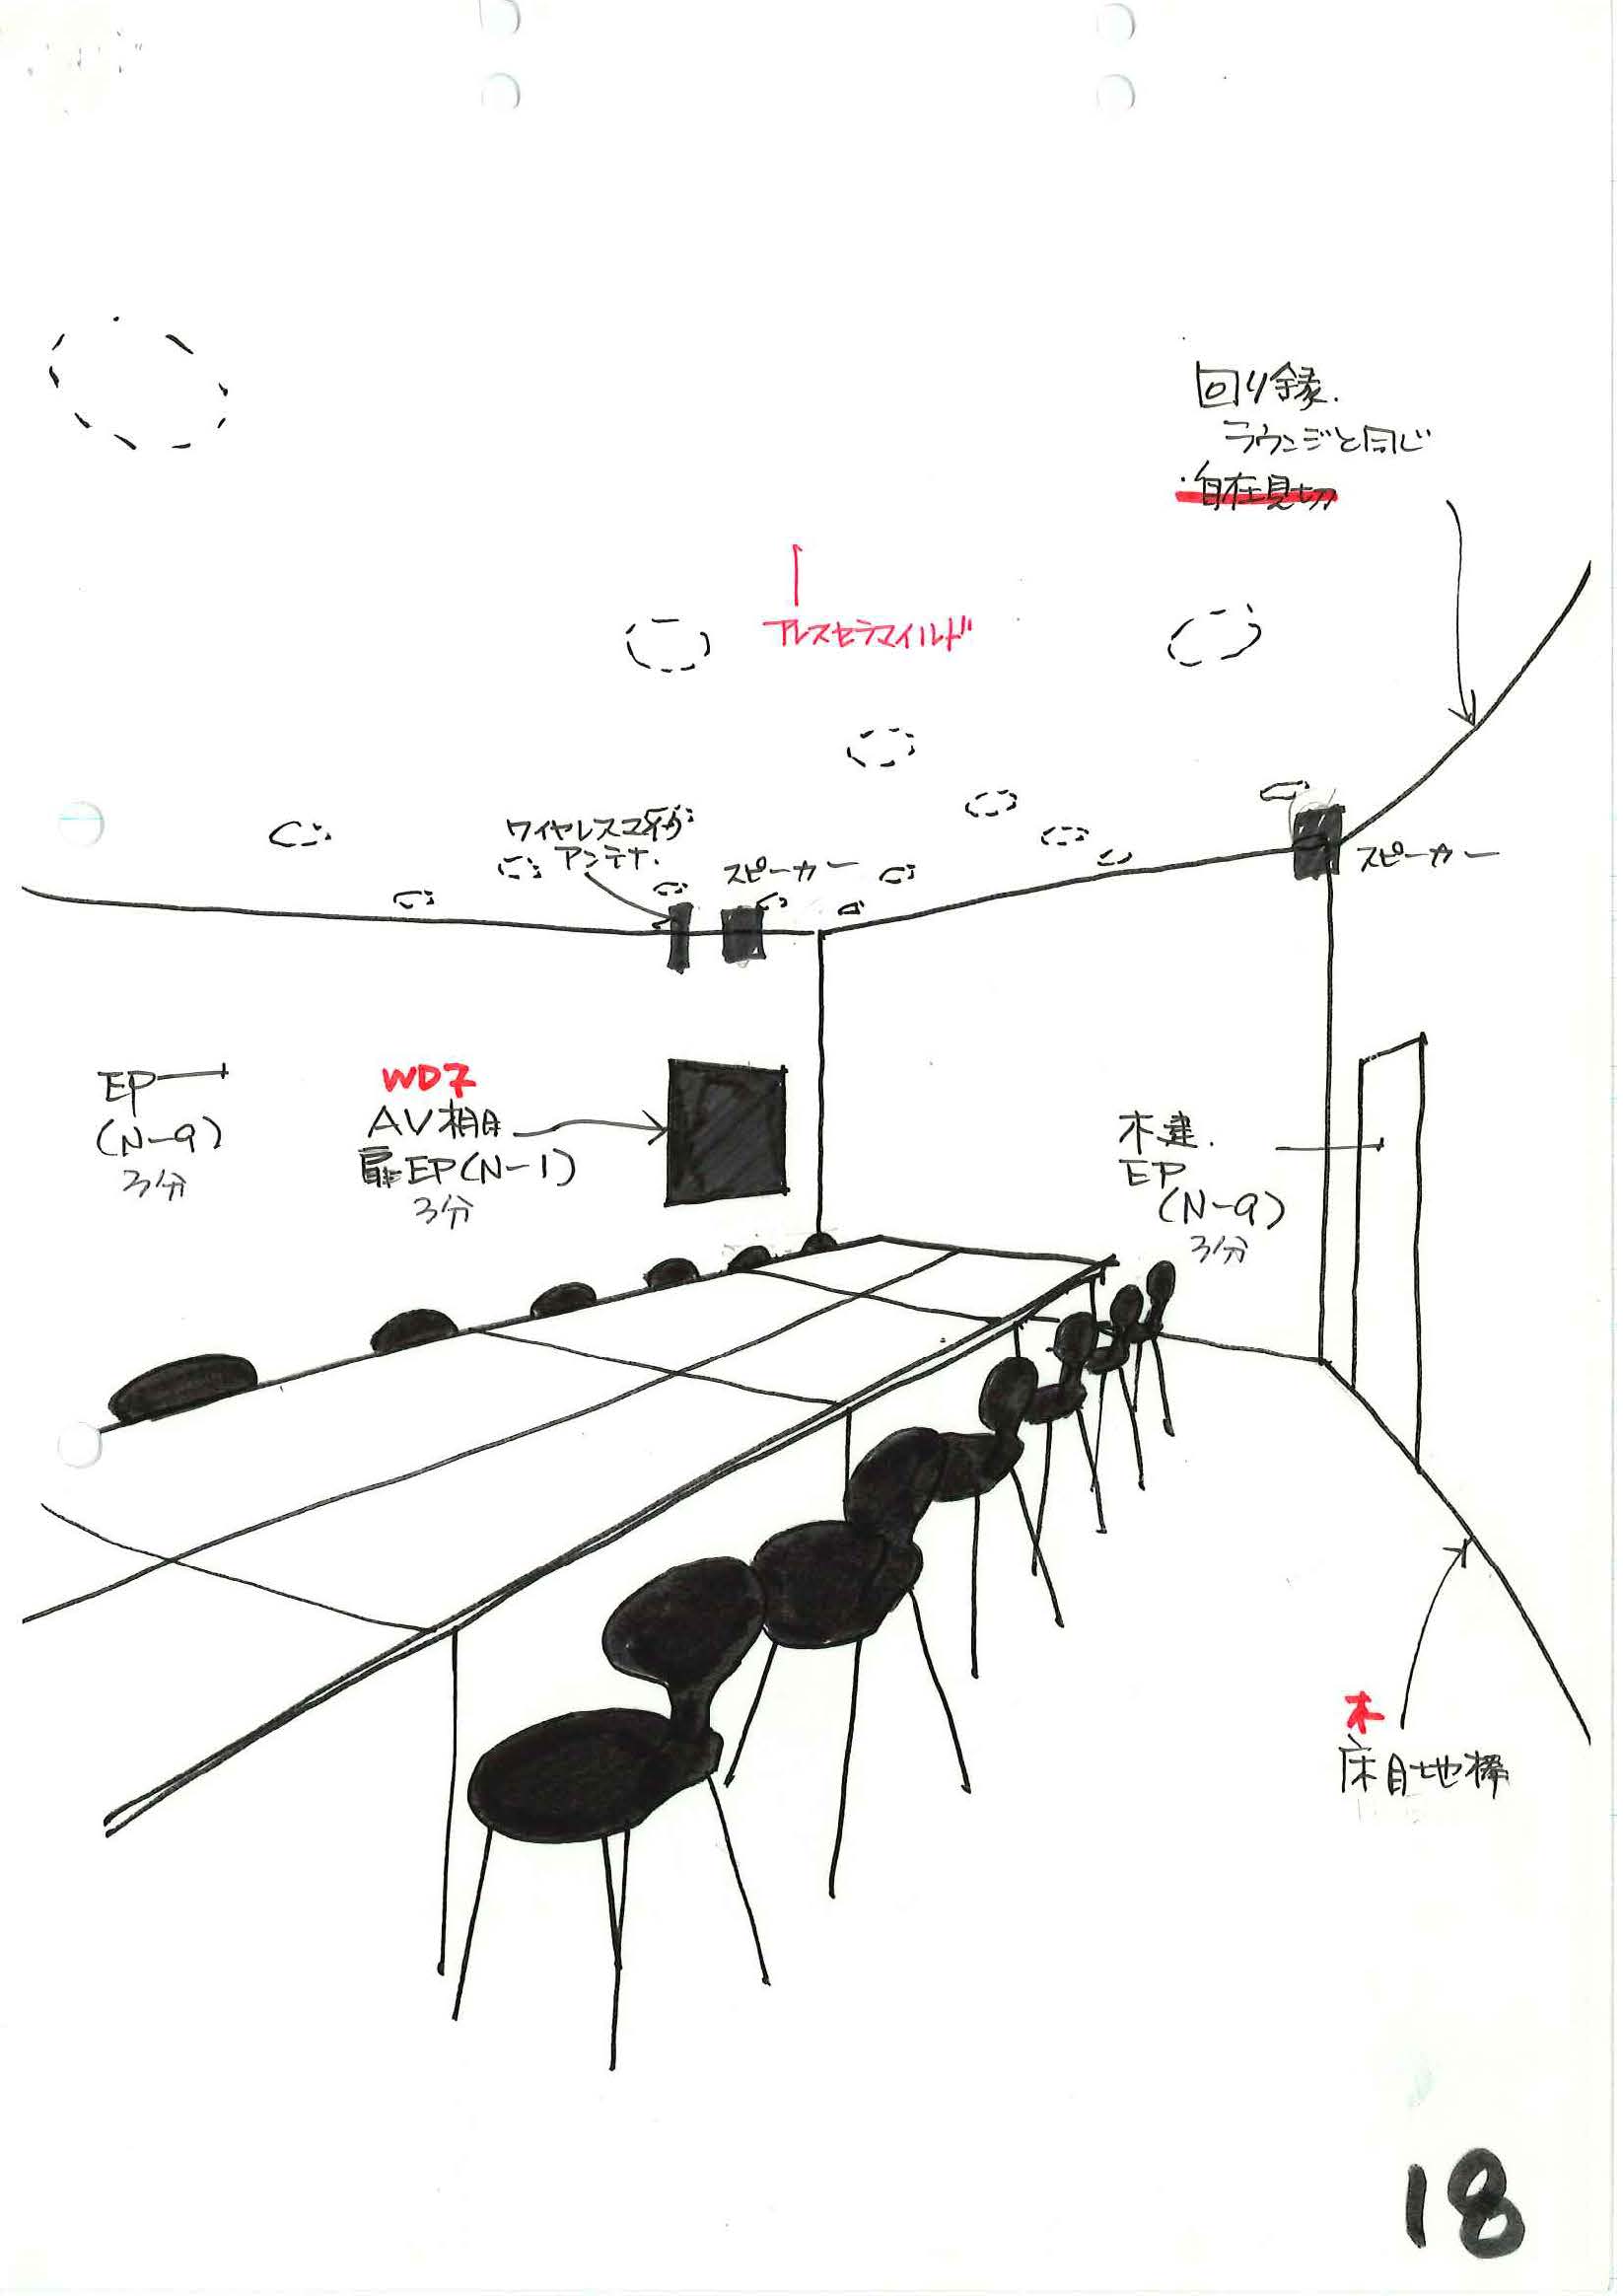 回り縁.
ラウンジと同じ
・自在見切
アレスセラマイルド
ワイヤレスマイク
アンテナ.
スピーカー
スピーカー
EP
(N-9)
3分
WD7
AV棚
扉EP(N-1)
3分
木建.
EP
(N-9)
3分
木
床見地
18